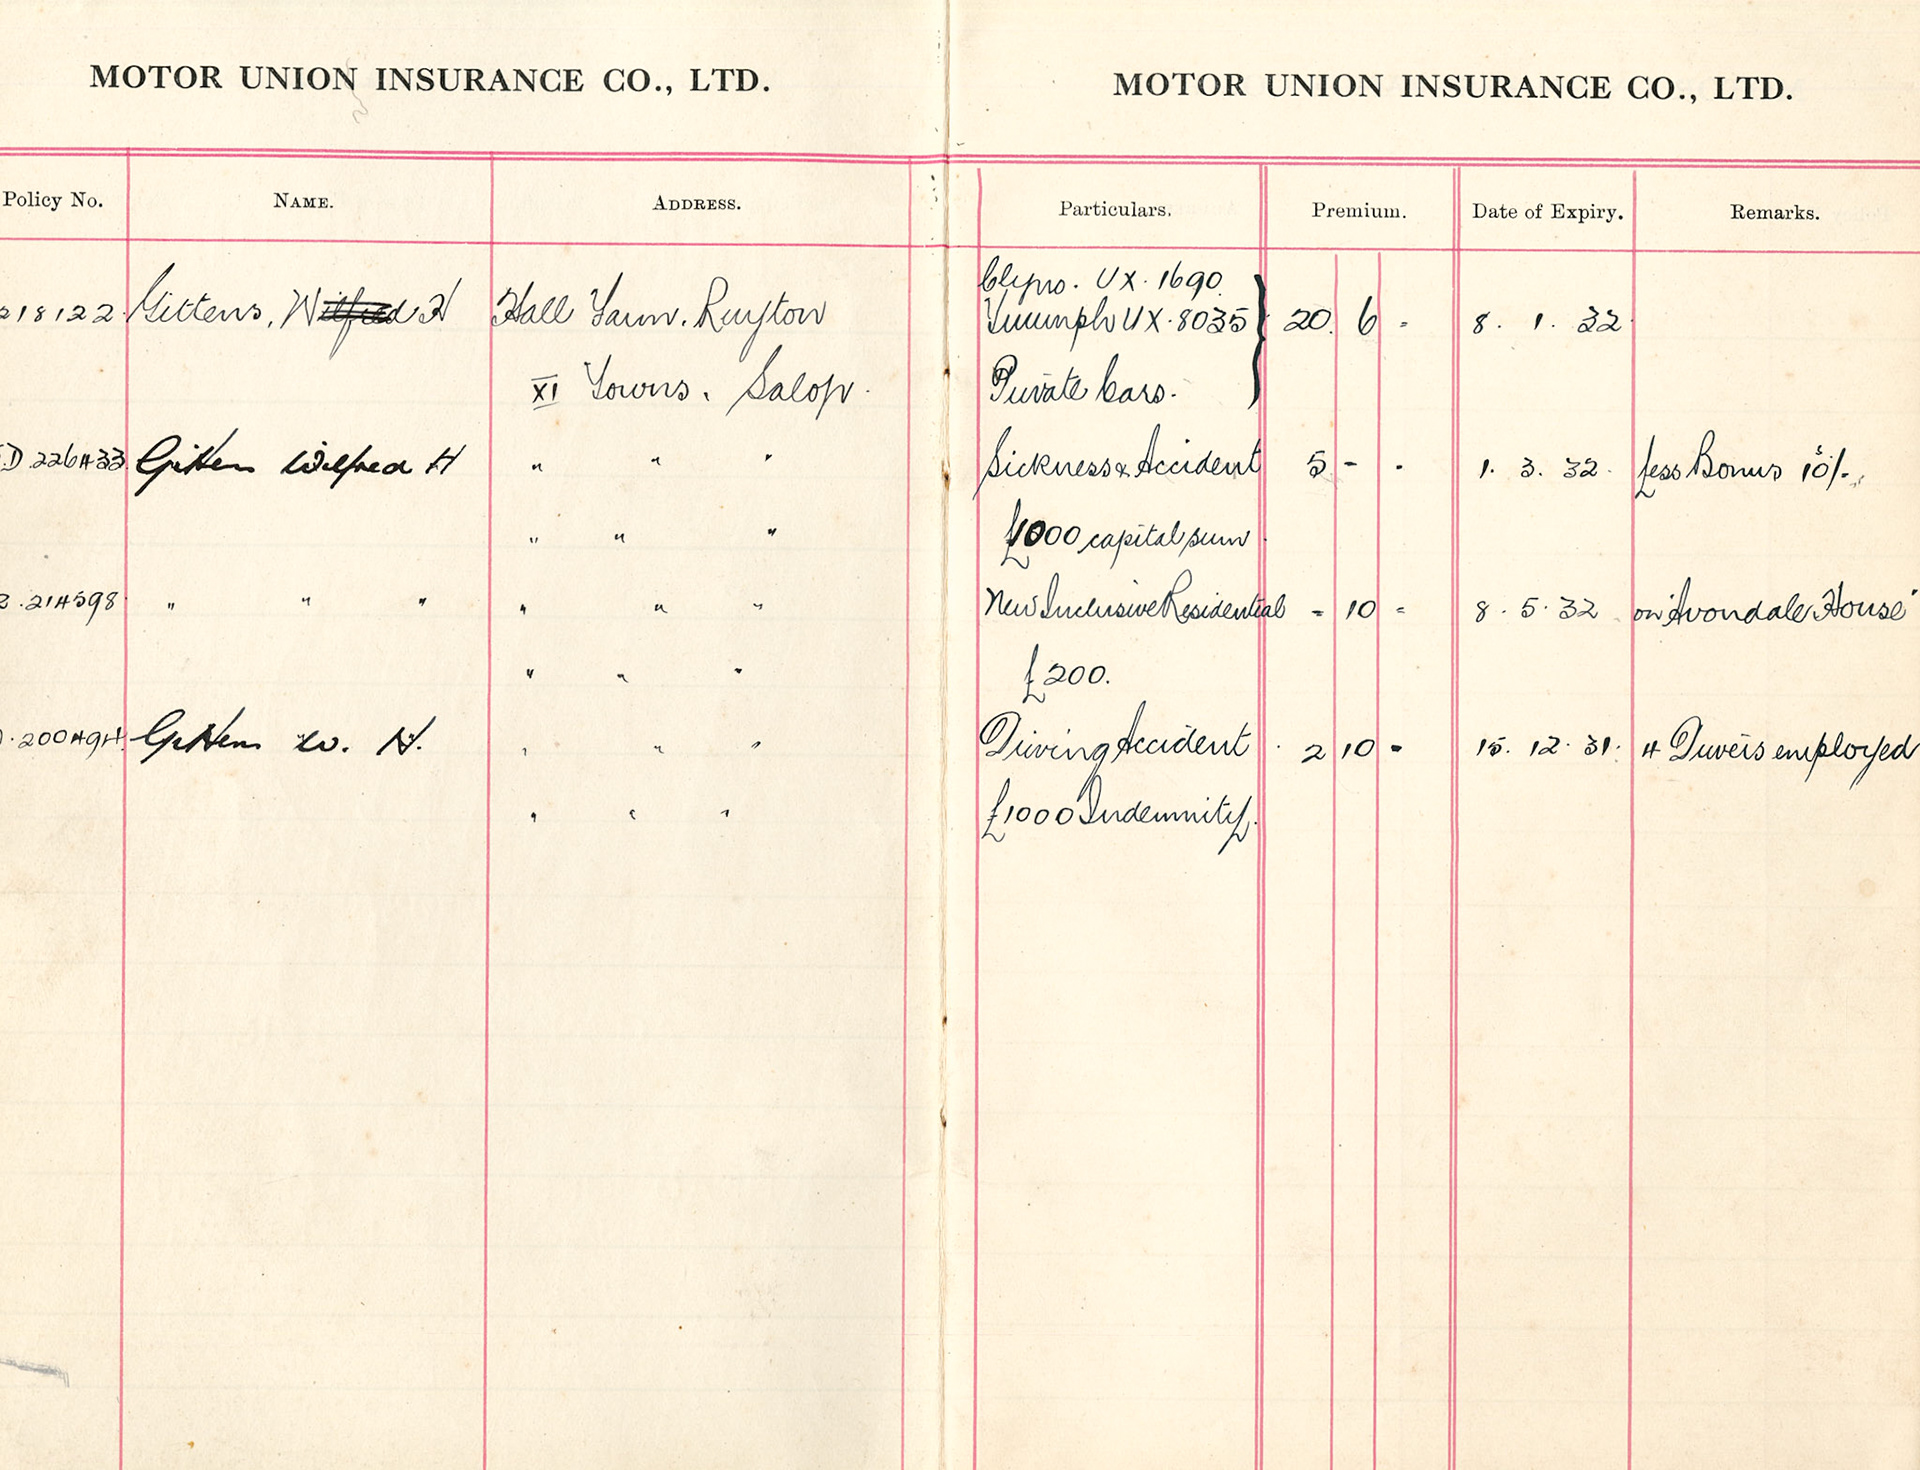 MOTOR UNION INSURANCE CO., LTD. MOTOR UNION INSURANCE CO., LTD.
Policy No. NAME. ADDRESS. Particulars. Premium. Date of Expiry. Remarks.
Clyno. UX. 1690.
218122 Gittens, Wilfred H Hall Farm. Ruyton Triumph UX. 8035 20. 6 - 8. 1. 32
XI Towns. Salop. Private Cars.
D.226433 Gittens Wilfred H " " " Sickness & Accident 5 - - 1. 3. 32. Less Bonus 10%.
" " " £1000 capital sum.
.214598 " " " " " " New Inclusive Residential - 10 - 8. 5. 32. on "Avondale House"
" " " £200.
.200494 Gittens W. H. " " " Driving Accident 2 10 - 15. 12. 31. 4 Drivers employed
" " " £1000 Indemnity.